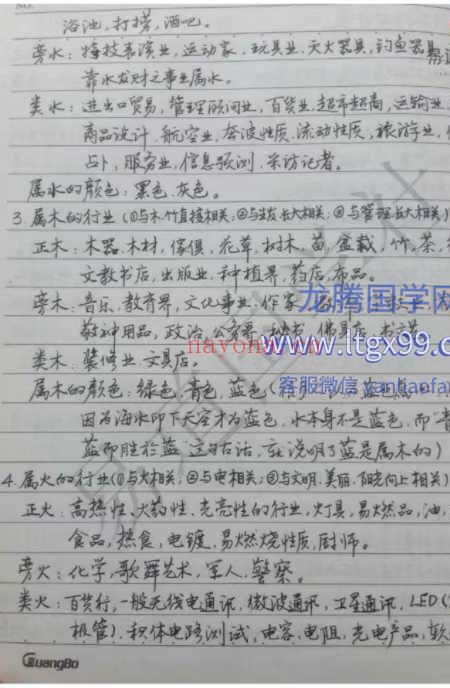 浴池,打捞,酒吧。
旁水:特技表演业,运动家,玩具业,灭火器具,钓鱼器
靠水发财之事业属水。
类水:进出口贸易,管理顾问业,百货业,超市超商,运输业
商品设计,航空业,奔波性质,流动性质,旅游业,
占卜,服务业,信息预测,采访记者。
属水的颜色:黑色,灰色。
3.属木的行业(①与木.竹直接相关;②与生发长大相关;③与管理长大相关)
正木:木器,木材,傢俱,花草,树木,苗,盆栽,竹,茶,
文教书店,出版业,种植界,药店,布品。
旁木:音乐,教育界,文化事业,作家
敬神用品,政治,公家界,秘书,佛具店
类木:装修业,文具店。
属木的颜色:绿色,青色,蓝色(
因为海水印下天空才为蓝色,水本身不是蓝色,而“青
蓝而胜于蓝”这句古话,在说明了蓝是属木的)
4.属火的行业(①与火相关,②与电相关;③与文明.美丽.阳光向上相关)
正火:高热性,火药性,光亮性的行业,灯具,易燃品,油,
食品,热食,电镀,易燃烧性质,厨师。
旁火:化学,歌舞艺术,军人,警察。
类火:百货行,一般无线电通讯,微波通讯,卫星通讯,LED(
机管),积体电路测试,电容,电阻,光电产品,软
GuangBo
龙腾国学网
www.ltgx99.c
nayona.cn
客服微信 yantiaofan